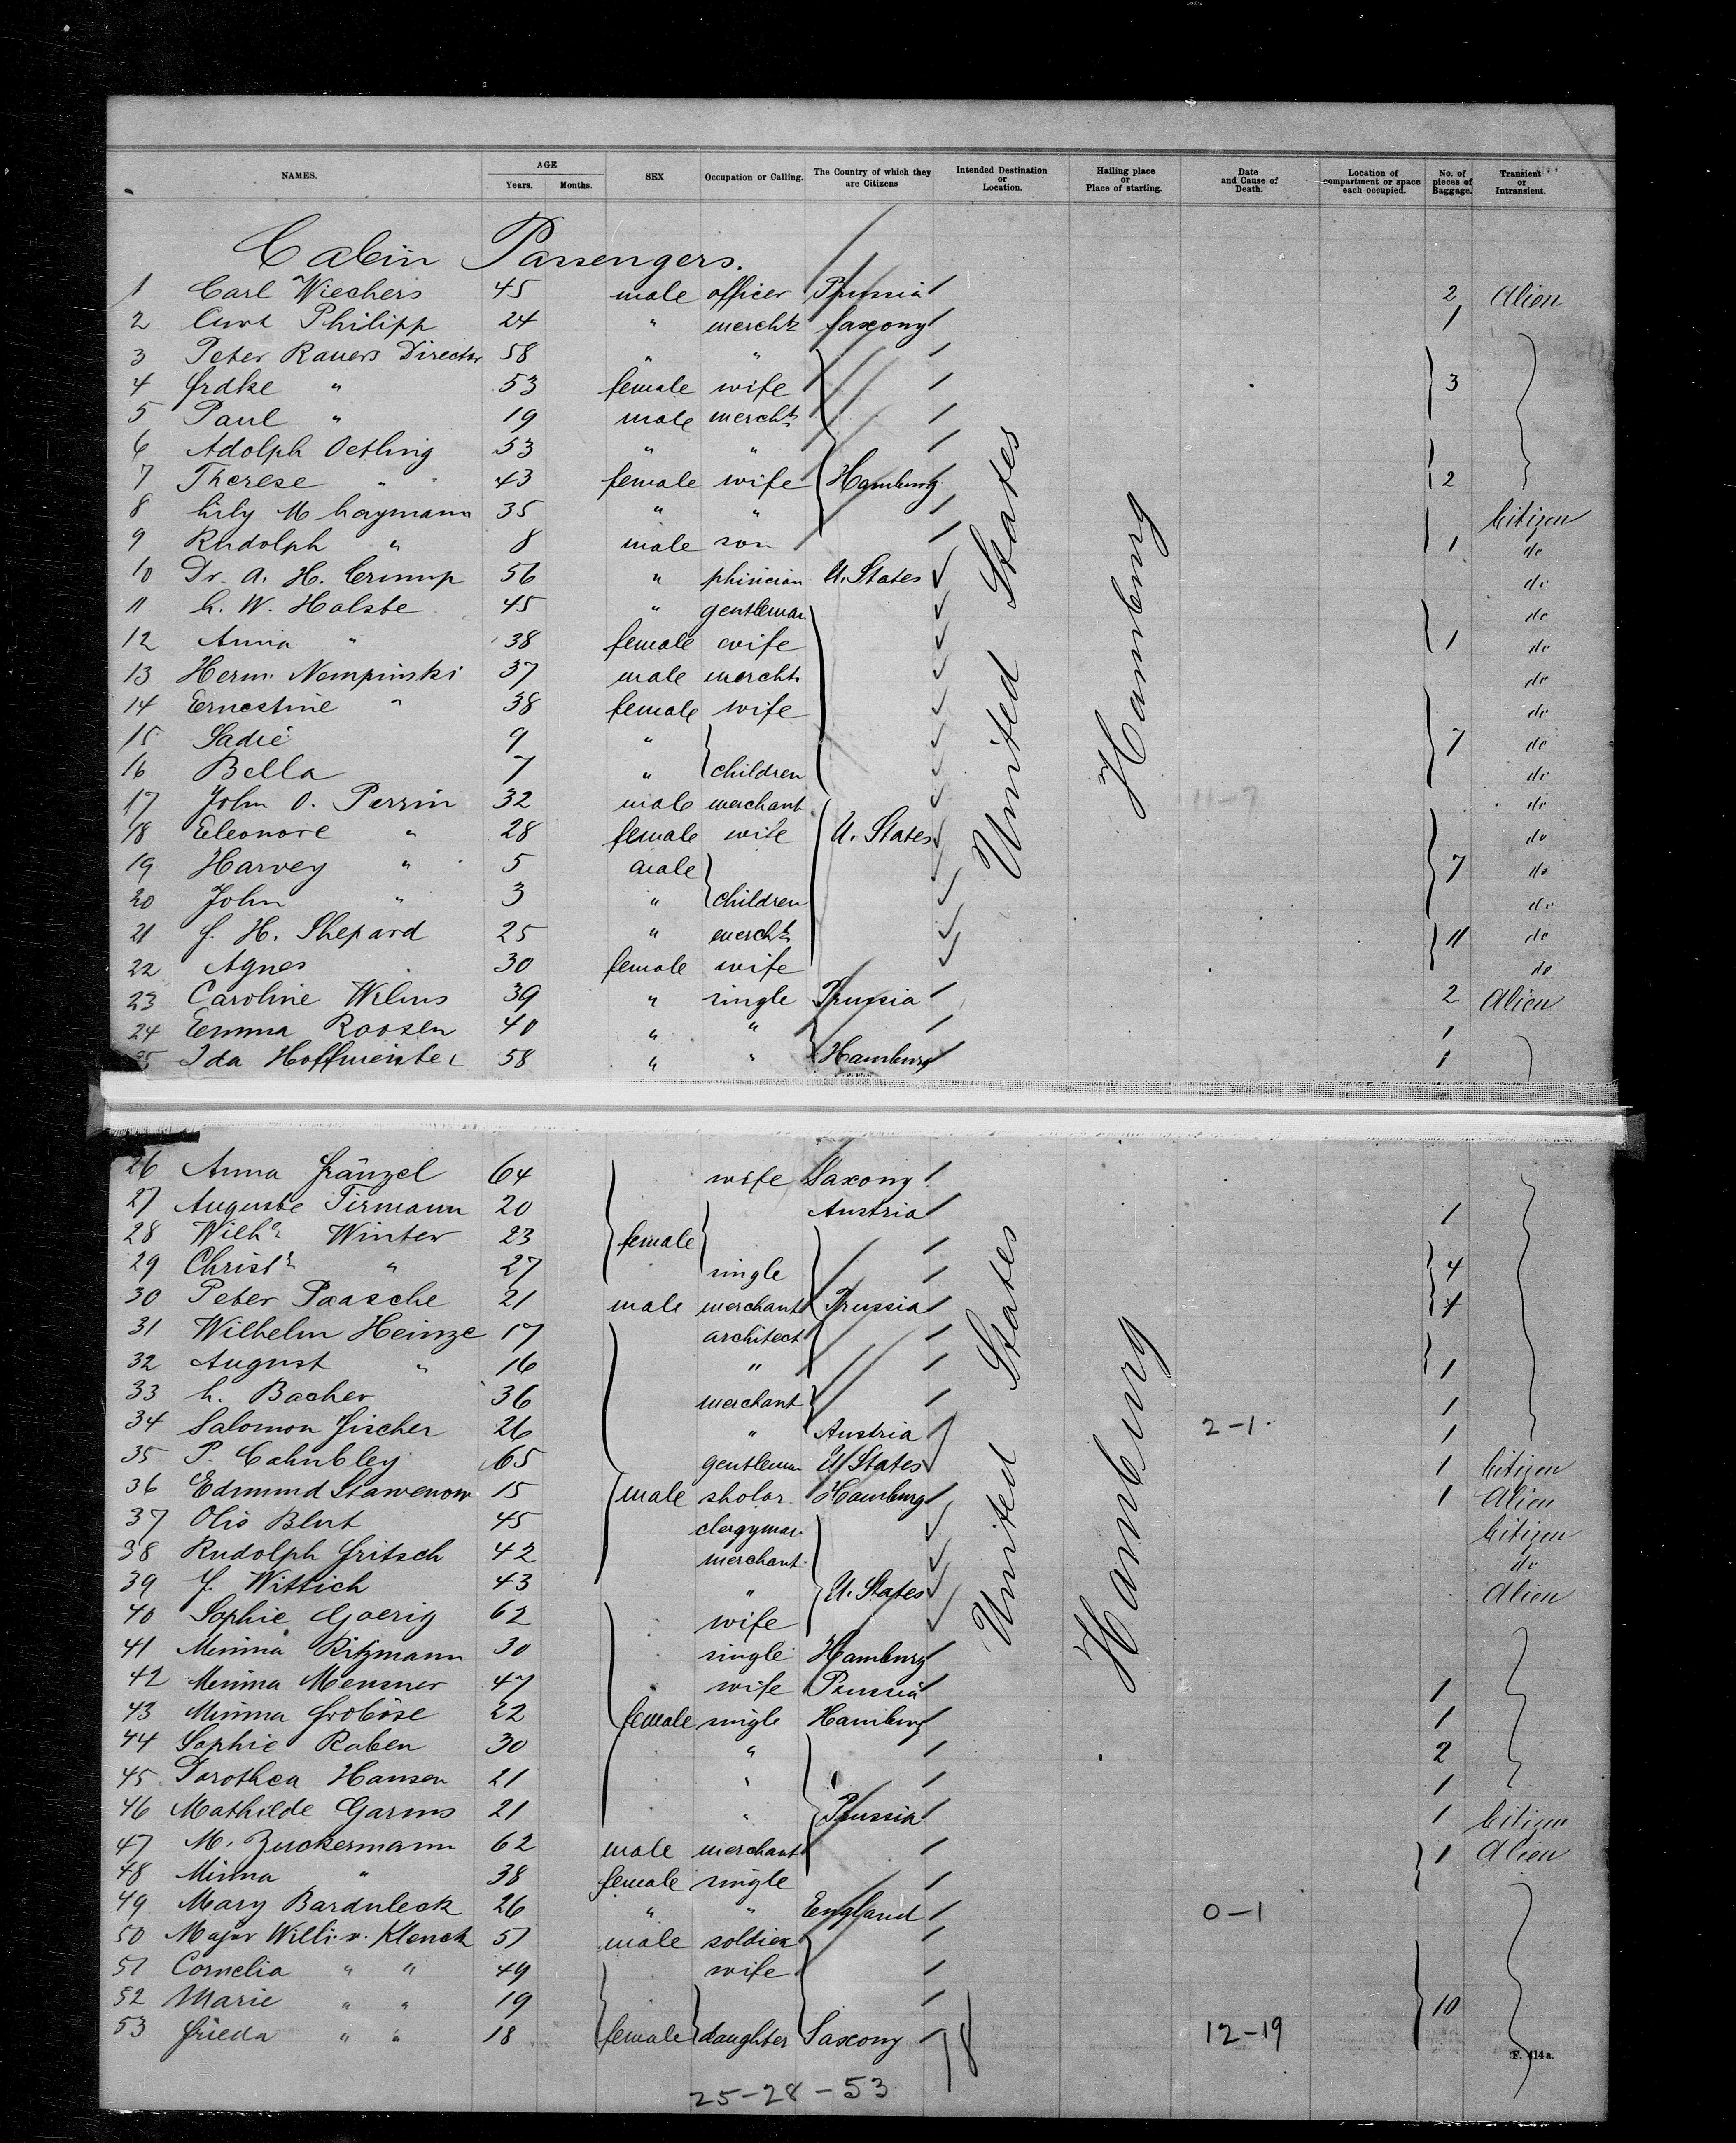 NAMES. AGE Years. Months. SEX Occupation or Calling. The Country of which they are Citizens Intended Destination or Location. Hailing place or Place of starting. Date and Cause of Death. Location of compartment or space each occupied. No. of pieces of Baggage. Transient or Intransient.
Cabin Passengers.
1 Carl Wiechers 45 male officer Prussia 2 Alien
2 Curt Philipp 24 " mercht Saxony 1
3 Peter Rauers Director 58 " "
4 Frdke " 53 female wife 3
5 Paul " 19 male mercht
6 Adolph Oetling 53 " "
7 Therese " 43 female wife Hamburg 2
8 Lily M Laymann 35 " " Citizen
9 Rudolph " 8 male son 1 do
10 Dr. A. H. Crump 56 " phisician U. States do
11 L. W. Holste 45 " gentleman do
12 Anna " 38 female wife 1 do
13 Herm. Nempinski 37 male mercht do
14 Ernestine " 38 female wife do
15 Sadie 9 " 7 do
16 Bella 7 " children do
17 John O. Perrin 32 male merchant 11-7 do
18 Eleonore " 28 female wife U. States do
19 Harvey " 5 male 7 do
20 John " 3 " children do
21 J. H. Shepard 25 " mercht 11 do
22 Agnes 30 female wife do
23 Caroline Wilms 39 " single Prussia 2 Alien
24 Emma Roosen 40 " " 1
25 Ida Hoffmeister 58 " " Hamburg 1
United States
Hamburg
26 Anna Fränzel 64 wife Saxony
27 Auguste Tirmann 20 Austria 1
28 Wilhe Winter 23 female
29 Christ " 27 single 4
30 Peter Paasche 21 male merchant Prussia 4
31 Wilhelm Heinze 17 architect
32 August " 16 " 1
33 L. Bacher 36 merchant 1
34 Salomon Fischer 26 " Austria 2-1 1
35 P. Cahnbley 65 gentleman U States 1 Citizen
36 Edmund Stawenow 15 male sholar Hamburg 1 Alien
37 Otis Blut 45 clergyman Citizen
38 Rudolph Fritsch 42 merchant do
39 J. Wittich 43 " U. States Alien
40 Sophie Goerig 62 wife
41 Minna Ritzmann 30 single Hamburg
42 Minna Mensner 47 wife Prussia 1
43 Minna Froböse 22 female single Hamburg 1
44 Sophie Raben 30 " 2
45 Dorothea Hansen 21 " 1
46 Mathilde Garms 21 " Prussia 1 Citizen
47 M. Zuckermann 62 male merchant 1 Alien
48 Minna " 38 female single
49 Mary Barduleck 26 " " England 0-1
50 Major Willi v. Klenck 51 male soldier
51 Cornelia " " 49 wife
52 Marie " " 19 10
53 Frieda " " 18 female daughter Saxony 12-19
United States
Hamburg
F. 414 a.
25-28-53